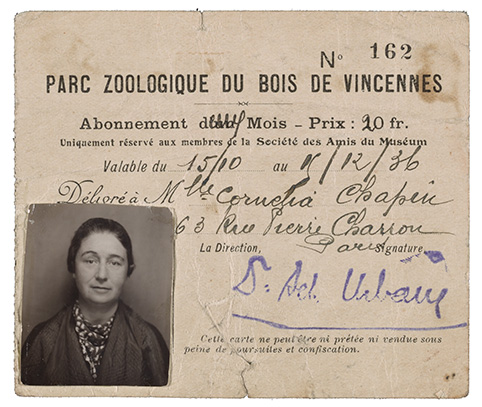 N° 162
PARC ZOOLOGIQUE DU BOIS DE VINCENNES
Abonnement Mois - Prix : 20 fr.
Uniquement réservé aux membres de la Société des Amis du Muséum
Valable du 15/10 au 15/12/36
Délivré à Mlle Cornelia Chapin
63 Rue Pierre Charron
La Direction, Paris Signature
Dr. Ach. Urbain
Cette carte ne peut être ni prêtée ni vendue sous
peine de poursuites et confiscation.